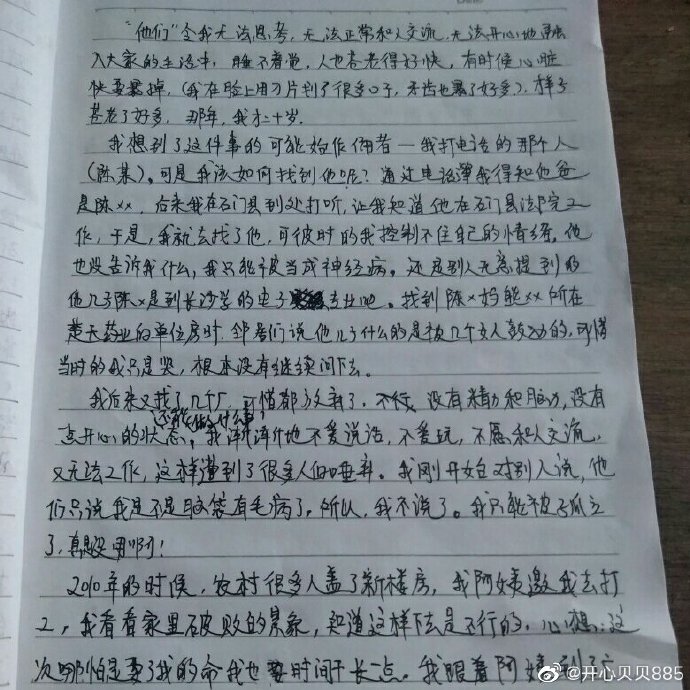 "他们"令我无法思考，无法正常和人交流，无法开心地融
入大家的生活中，睡不着觉，人也苍老得好快，有时候心脏
快要暴掉，（我在脸上用刀片划了很多口子，牙齿也暴了好多）。样子
苍老了好多。那年，我才二十岁。
我想到了这件事的可能始作俑者—我打电话的那个人
（陈某）。可是我该如何找到他呢？通过电话簿我得知他爸
是陈××，后来我在石门县到处打听，让我知道他在石门县法院工
作，于是，我就去找了他，可彼时的我控制不住自己的情绪。他
也没告诉我什么，我只能被当成神经病。还是别人无意提到的
他儿子陈×是到长沙学的电子 专业吧。找到陈×妈熊××所在
楚天药业的单位房时，邻居们说他儿子什么的是被几个女人鼓动的，可惜
当时的我只是哭，根本没有继续问下去。
我后来又找了几个厂，可惜都放弃了，不行，没有精力和脑力，没有
还能做什么事？
点开心的状态，我渐渐地不爱说话，不爱玩，不愿和人交流，
又无法工作，这样遭到了很多人的唾弃。我刚开始对别人说，他
们只说我是不是脑袋有毛病了。所以，我不说了。我只能被孤立
了，真是没用啊！
2010年的时候，农村很多人盖了新楼房，我阿姨邀我去打
工，我看看家里破败的景象，知道这样下去是不行的，心想：这
次哪怕是要了我的命我也要时间干长一点。我跟着阿姨到了
@开心贝贝885